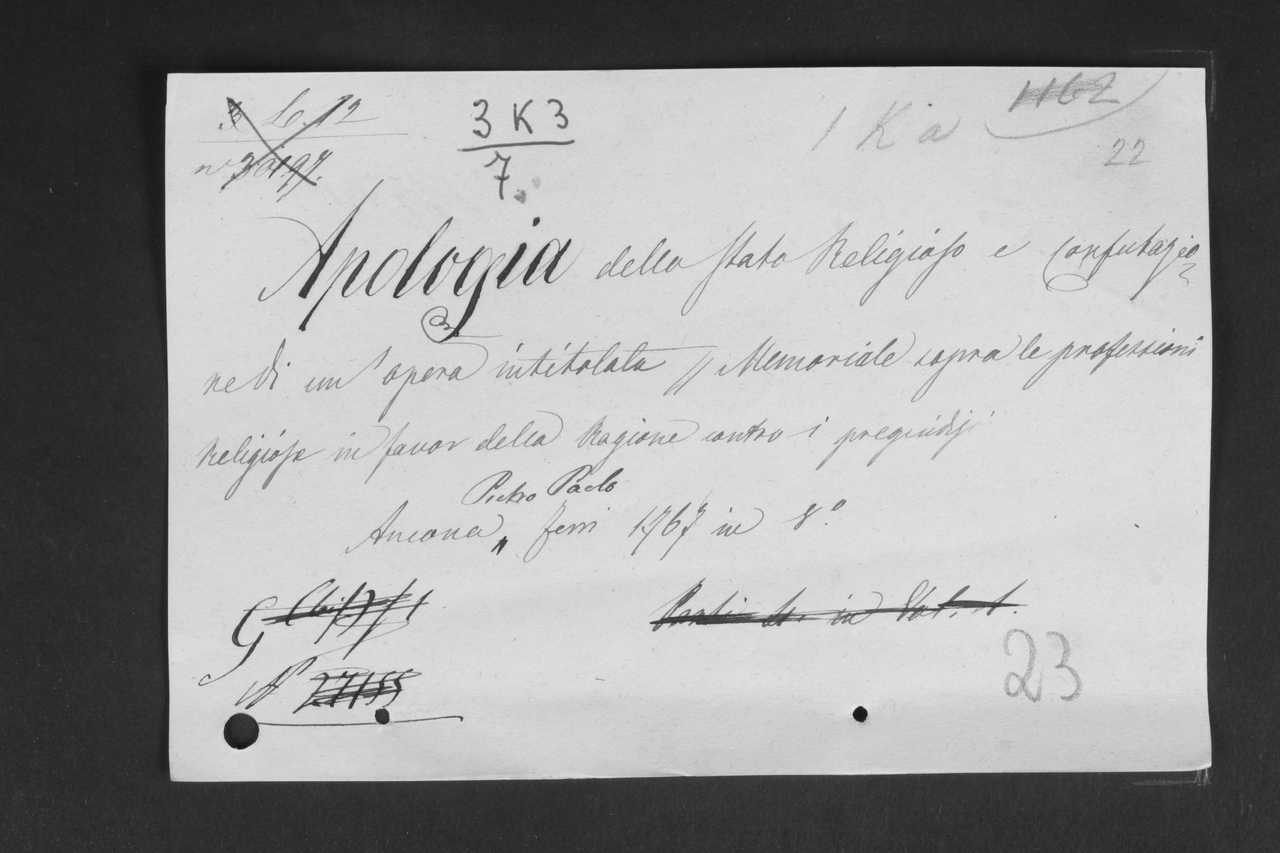 3 K 3
7.
1 K a
1162
22
Apologia dello stato Religioso e confutazio
ne di un' opera intitolata // Memoriale sopra le professioni
Religiose in favor della Ragione contro i pregiudizi
Pietro Paolo
Ancona „ Ferri 1767 in 8.º
G
Nº 27155
23